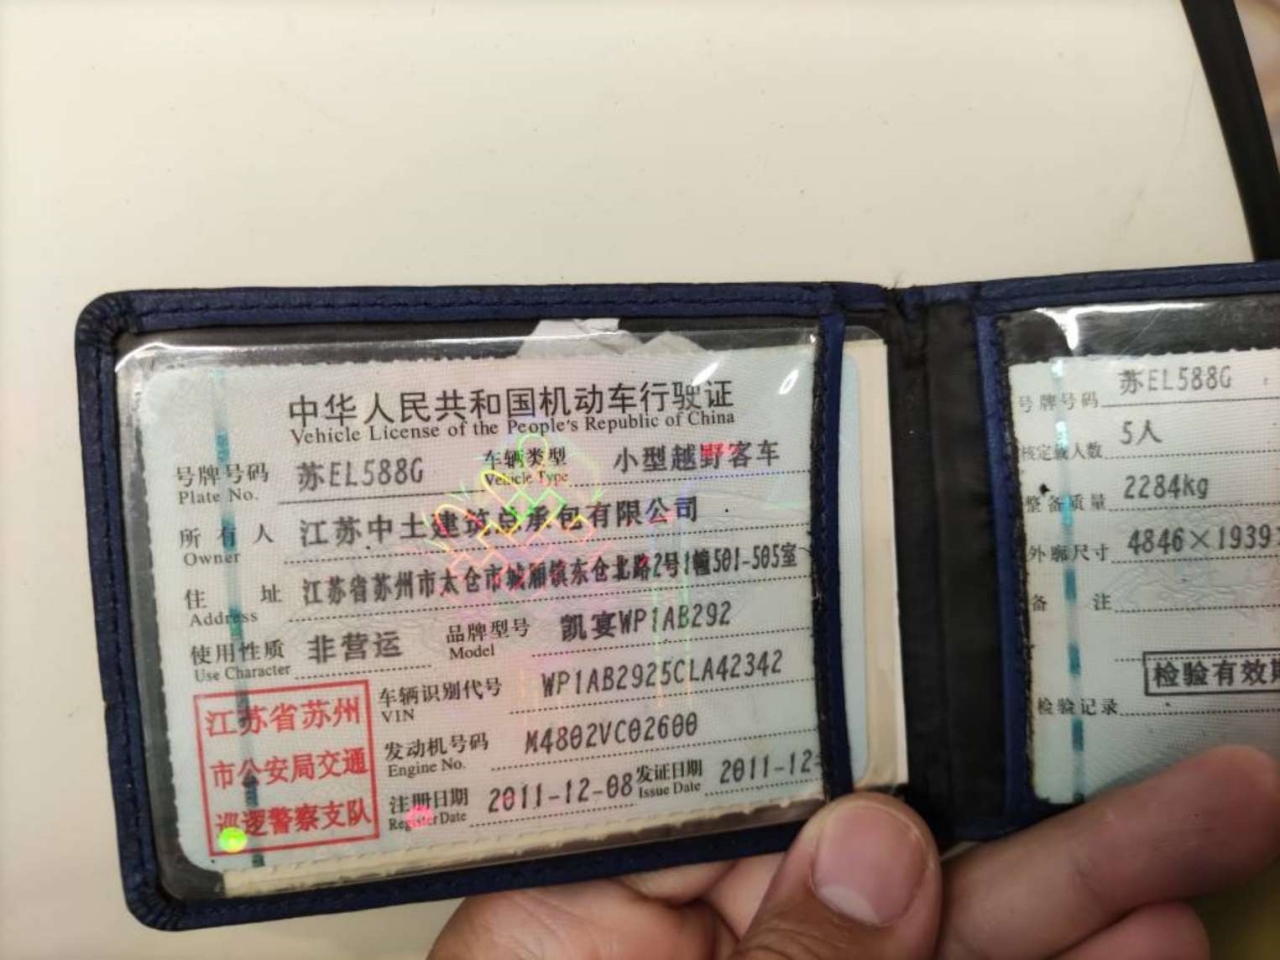 中华人民共和国机动车行驶证
Vehicle License of the People's Republic of China
号牌号码 苏EL588G 车辆类型 小型越野客车
Plate No. Vehicle Type
所有人 江苏中土建筑总承包有限公司
Owner
住址 江苏省苏州市太仓市城厢镇东仓北路2号1幢501-505室
Address
使用性质 非营运 品牌型号 凯宴WP1AB292
Use Character Model
车辆识别代号 WP1AB2925CLA42342
VIN
发动机号码 M4802VC02600
Engine No.
注册日期 2011-12-08 发证日期 2011-12-
Register Date Issue Date
江苏省苏州
市公安局交通
巡逻警察支队
号牌号码 苏EL588G
核定载人数 5人
整备质量 2284kg
外廓尺寸 4846×1939
备注
检验有效期
检验记录